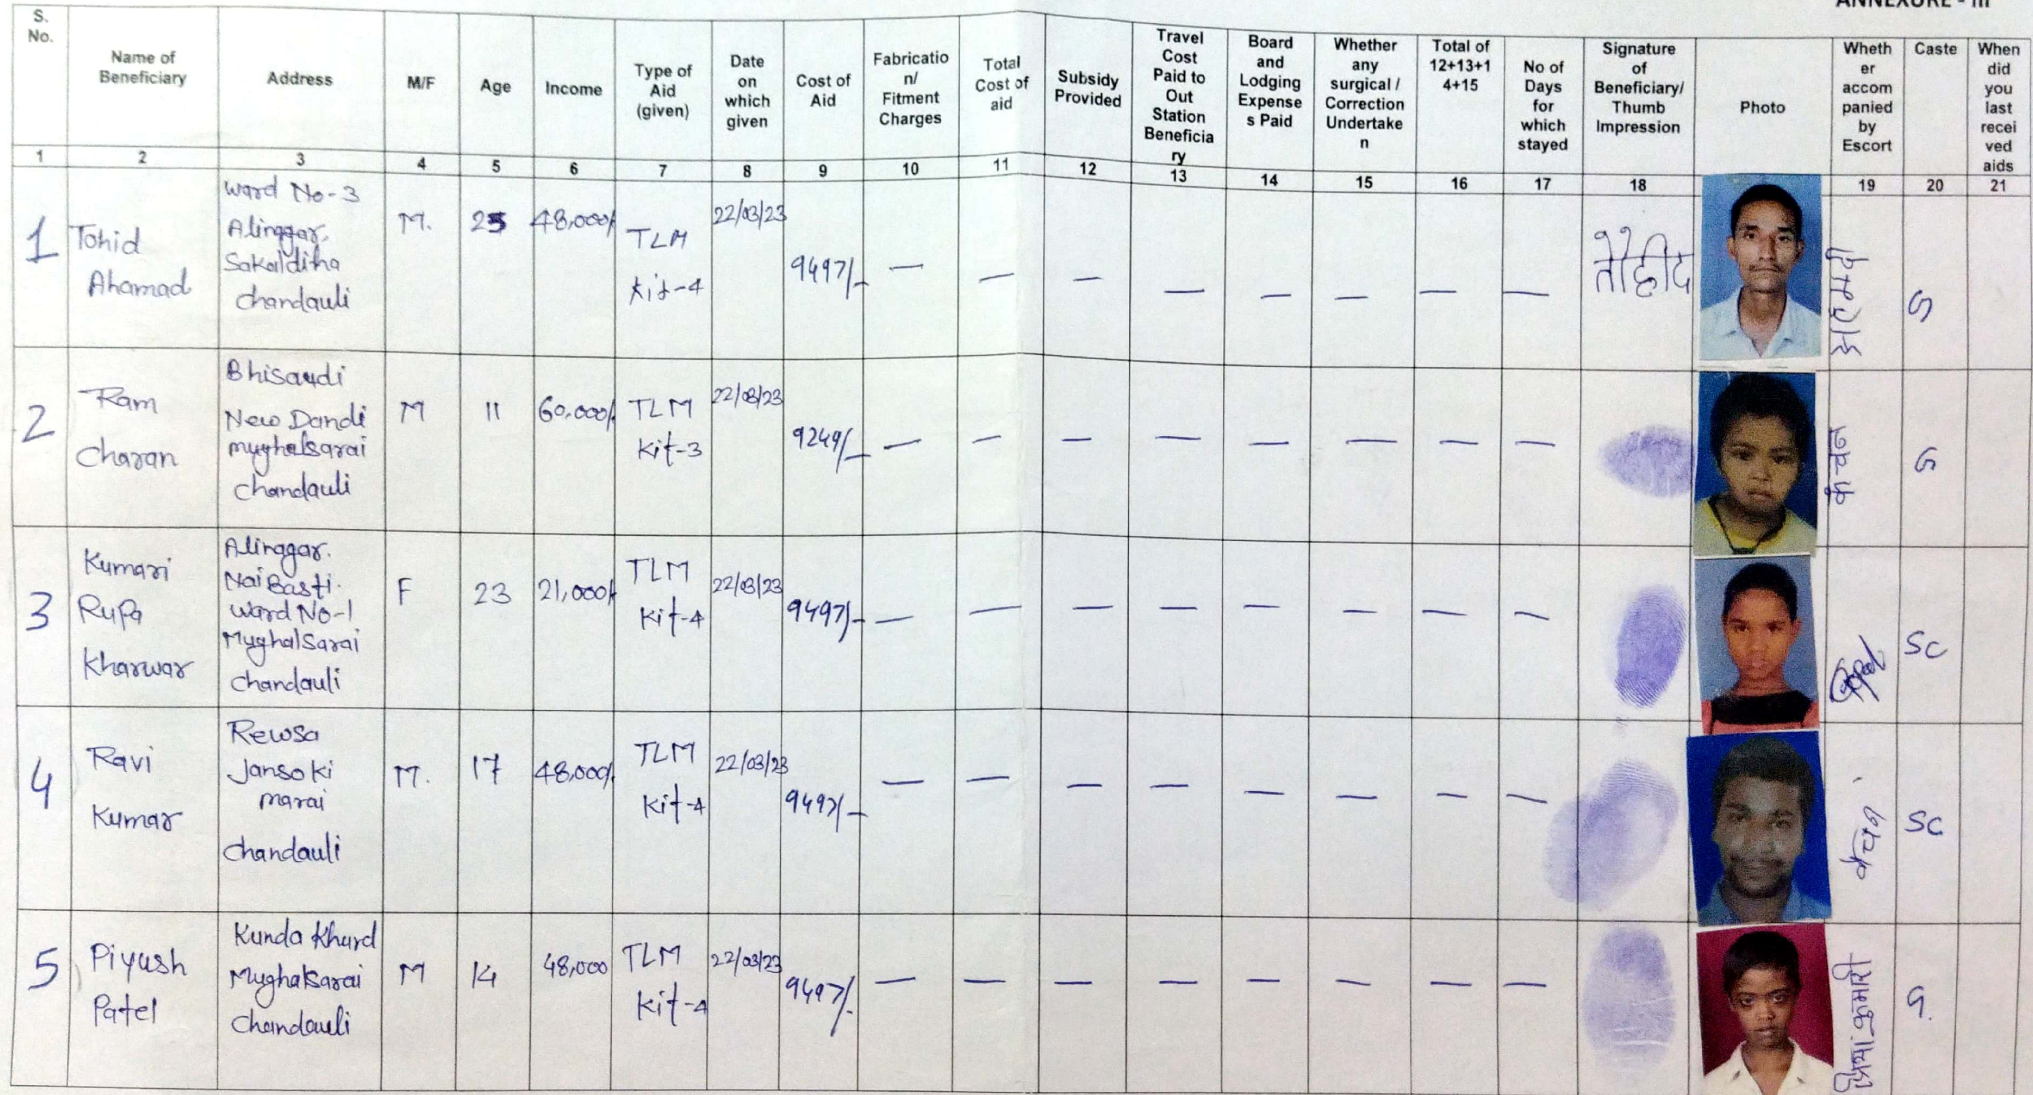 ANNEXURE - III
S. No.
Name of Beneficiary
Address
M/F
Age
Income
Type of Aid (given)
Date on which given
Cost of Aid
Fabricatio n/ Fitment Charges
Total Cost of aid
Subsidy Provided
Travel Cost Paid to Out Station Beneficia ry
Board and Lodging Expense s Paid
Whether any surgical / Correction Undertake n
Total of 12+13+1 4+15
No of Days for which stayed
Signature of Beneficiary/ Thumb Impression
Photo
Wheth er accom panied by Escort
Caste
When did you last recei ved aids
1 2 3 4 5 6 7 8 9 10 11 12 13 14 15 16 17 18 19 20 21
1
Tohid
Ahamad
Ward No-3
Alinggar,
Sakaldiha
Chandauli
M.
25
48,000/
TLM
Kit-4
22/03/23
9497/-
— — — — — — — —
तौहीद
G
2
Ram
Charan
Bhisaudi
New Dandi
mughalsarai
Chandauli
M
11
60,000/
TLM
Kit-3
22/03/23
9249/-
— — — — — — — —
कंचन
G
3
Kumari
Rupa
Kharwar
Alinggar.
Nai Basti.
Ward No-1
MughalSarai
Chandauli
F
23
21,000/
TLM
Kit-4
22/03/23
9497/-
— — — — — — — —
SC
4
Ravi
Kumar
Rewsa
Janso ki
marai
Chandauli
M.
17
48,000/
TLM
Kit-4
22/03/23
9497/-
— — — — — — — —
SC
5
Piyush
Patel
Kunda Khurd
Mughalsarai
Chandauli
M
14
48,000
TLM
Kit-4
22/03/23
9497/-
— — — — — — — —
कुमारी
G.